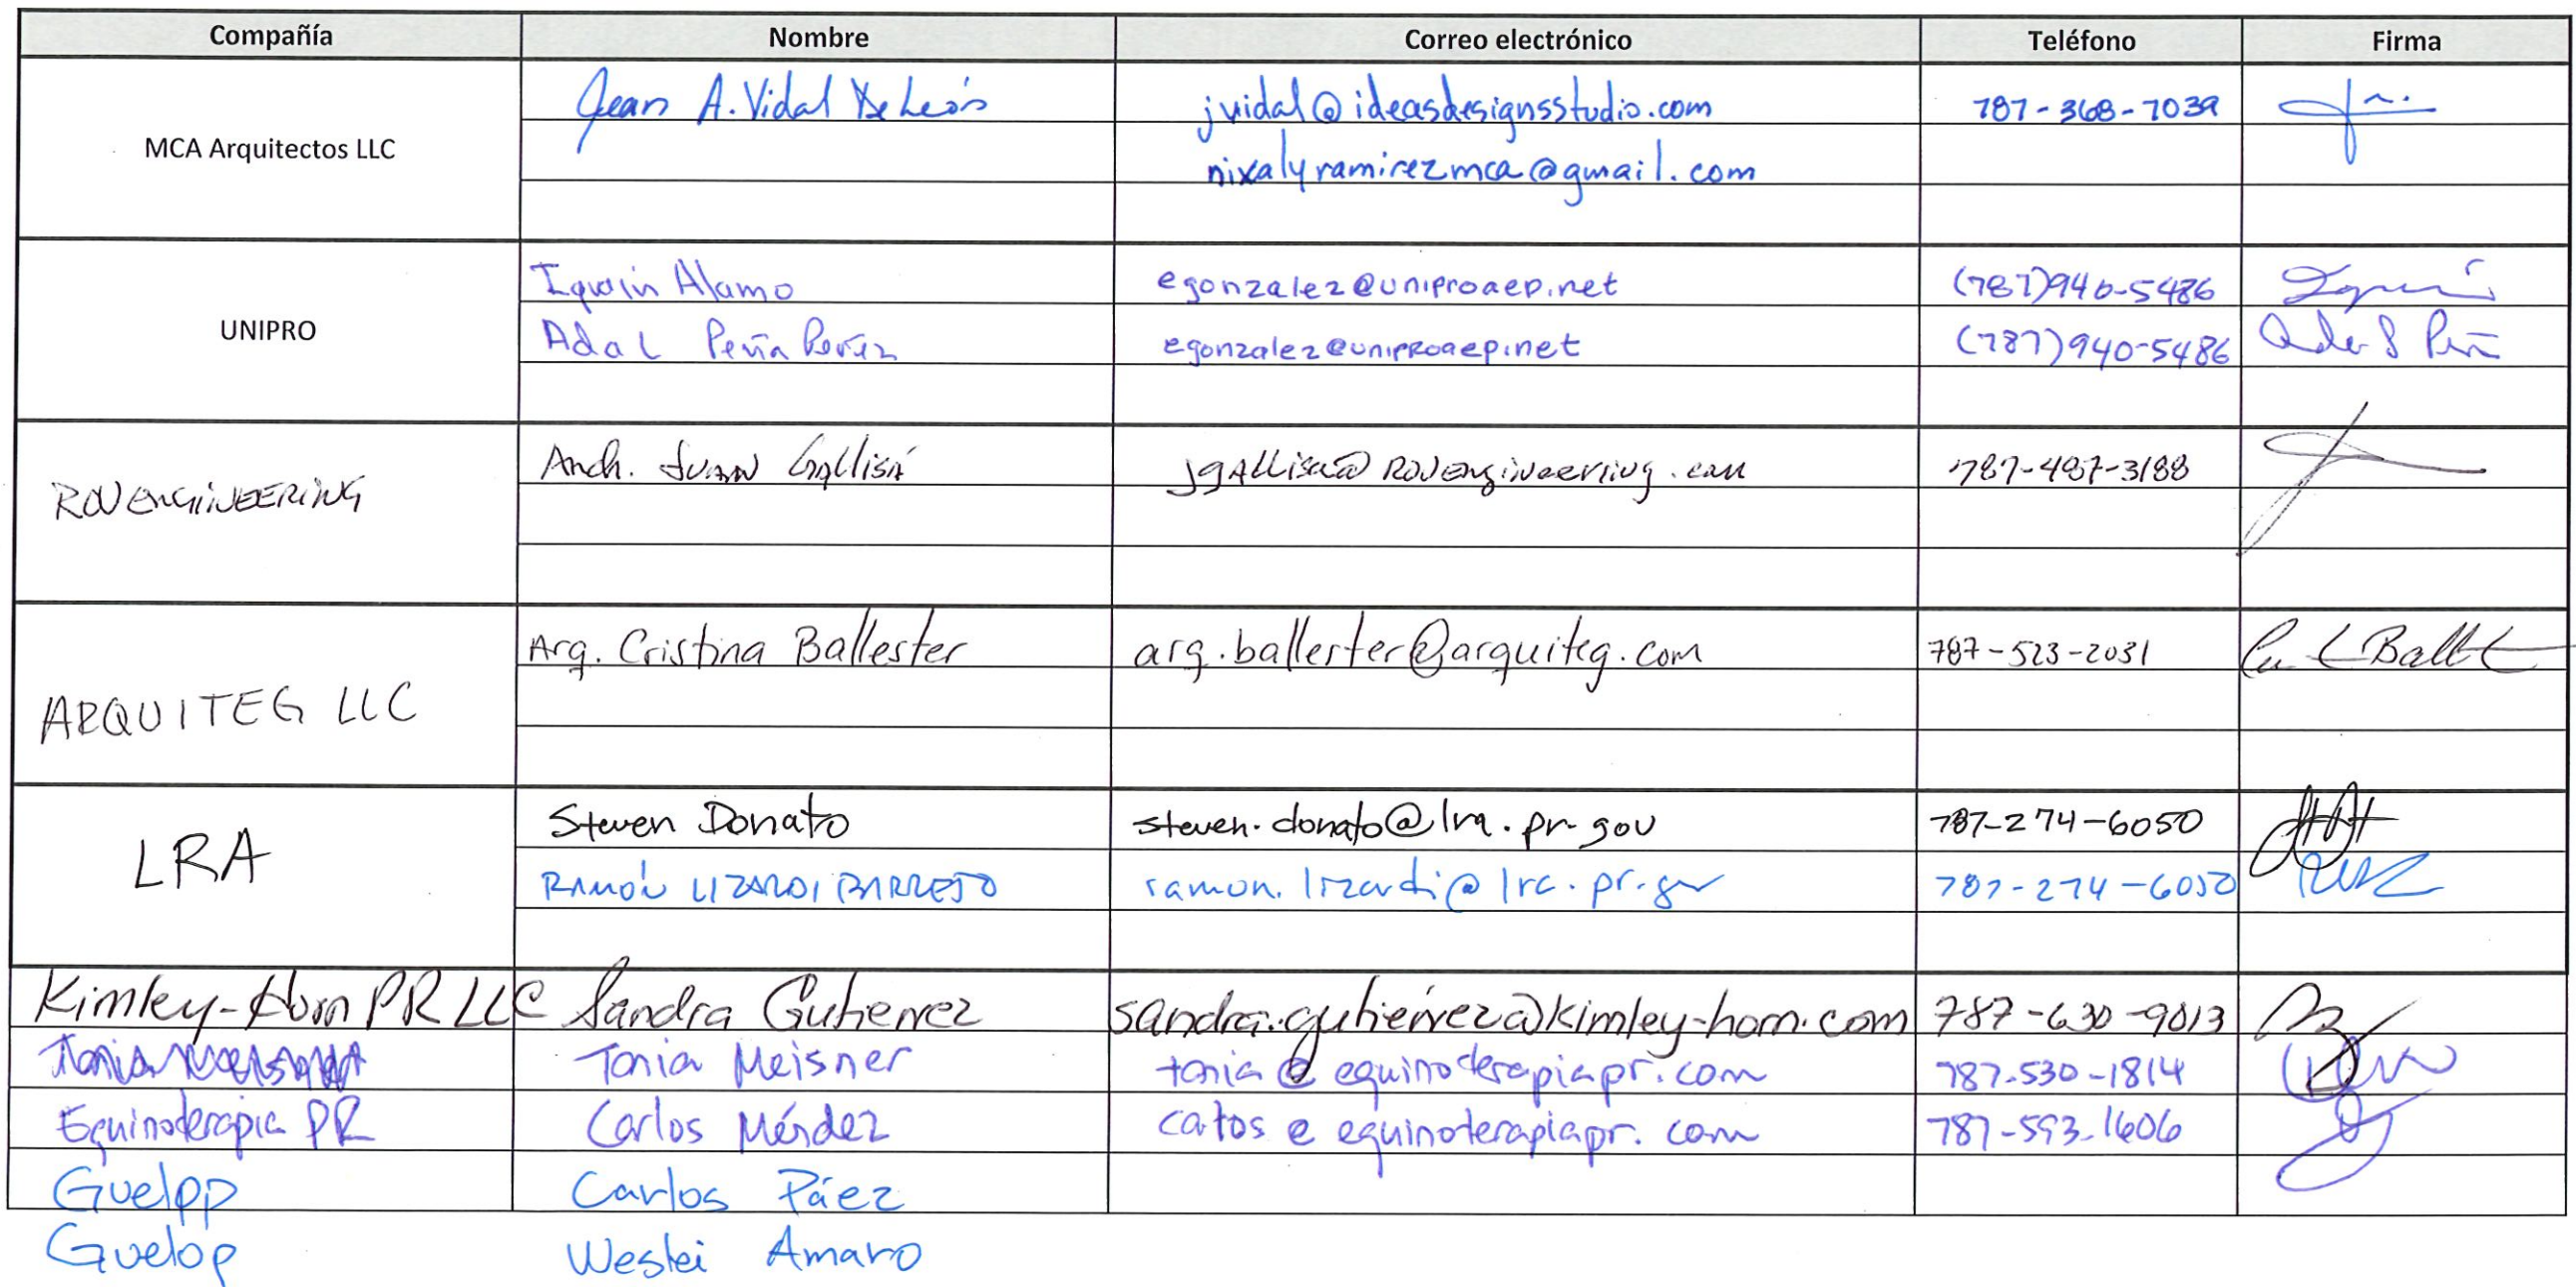 Compañía Nombre Correo electrónico Teléfono Firma
MCA Arquitectos LLC
Jean A. Vidal De León jvidal@ideasdesignsstudio.com 787-368-7039
nixalyramirezmca@gmail.com
UNIPRO
Iguain Alamo egonzalez@uniproaep.net (787)940-5486
Adal Peña Perez egonzalez@uniproaep.net (787)940-5486
ROV ENGINEERING
Arch. Juan Gallisá jgallisa@rovengineering.com 787-487-3188
ARQUITEG LLC
Arq. Cristina Ballester arq.ballester@arquiteg.com 787-523-2031
LRA
Steven Donato steven.donato@lra.pr.gov 787-274-6050
RAMÓN LIZARDI BARRETO ramon.lizardi@lra.pr.gov 787-274-6050
Kimley-Horn PR LLC Sandra Gutierrez sandra.gutierrez@kimley-horn.com 787-630-9013
Tania Meisner tania@equinoterapiapr.com 787-530-1814
Equinoterapia PR Carlos Méndez catos@equinoterapiapr.com 787-593-1606
Guelpp Carlos Páez
Guelpp Weslei Amaro